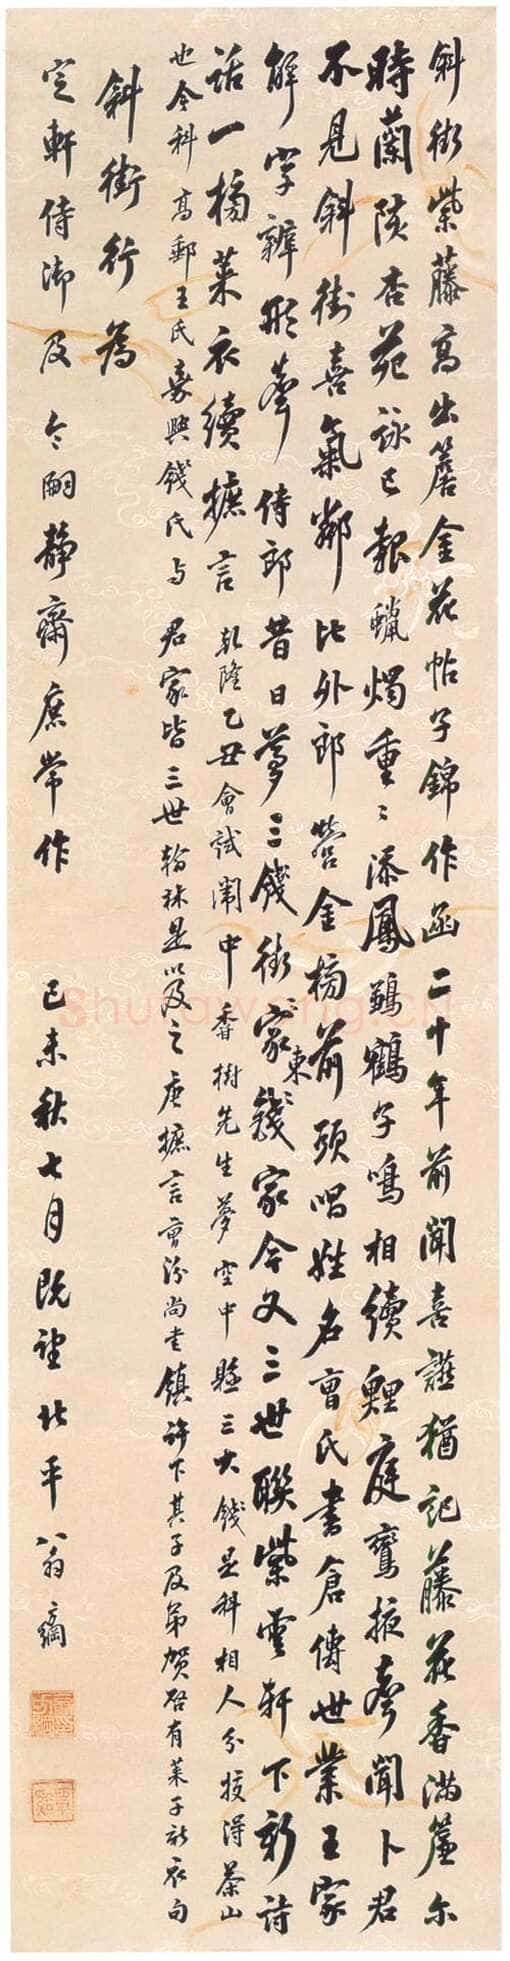 斜街紫藤高出簷金花帖子錦作函二十年前聞喜讌猶記藤花香滿簾尔
時蘭陔杏苑詠已報蠟燭重〻添鳳鷄鶴子鳴相續鯉庭鸞掖聲聞卜君
不見斜街喜氣鄰比外郎營金榜前頭唱姓名曹氏書倉傳世業王家
解字辨形聲侍郎昔日夢三錢街東〻家錢家今又三世聯紫雲軒下新詩
話一榜萊衣續摭言
乾隆乙丑會試闈中香樹先生夢空中懸三大錢是科相人分校得茶山
也今科高郵王氏嘉興錢氏与君家皆三世翰林是以及之唐摭言曹汾尚書鎮許下其子及弟賀啓有萊子彩衣句
斜街行為
定軒侍御及令嗣靜齋庶常作
己未秋七月既望北平翁方綱
Shufawang.cn